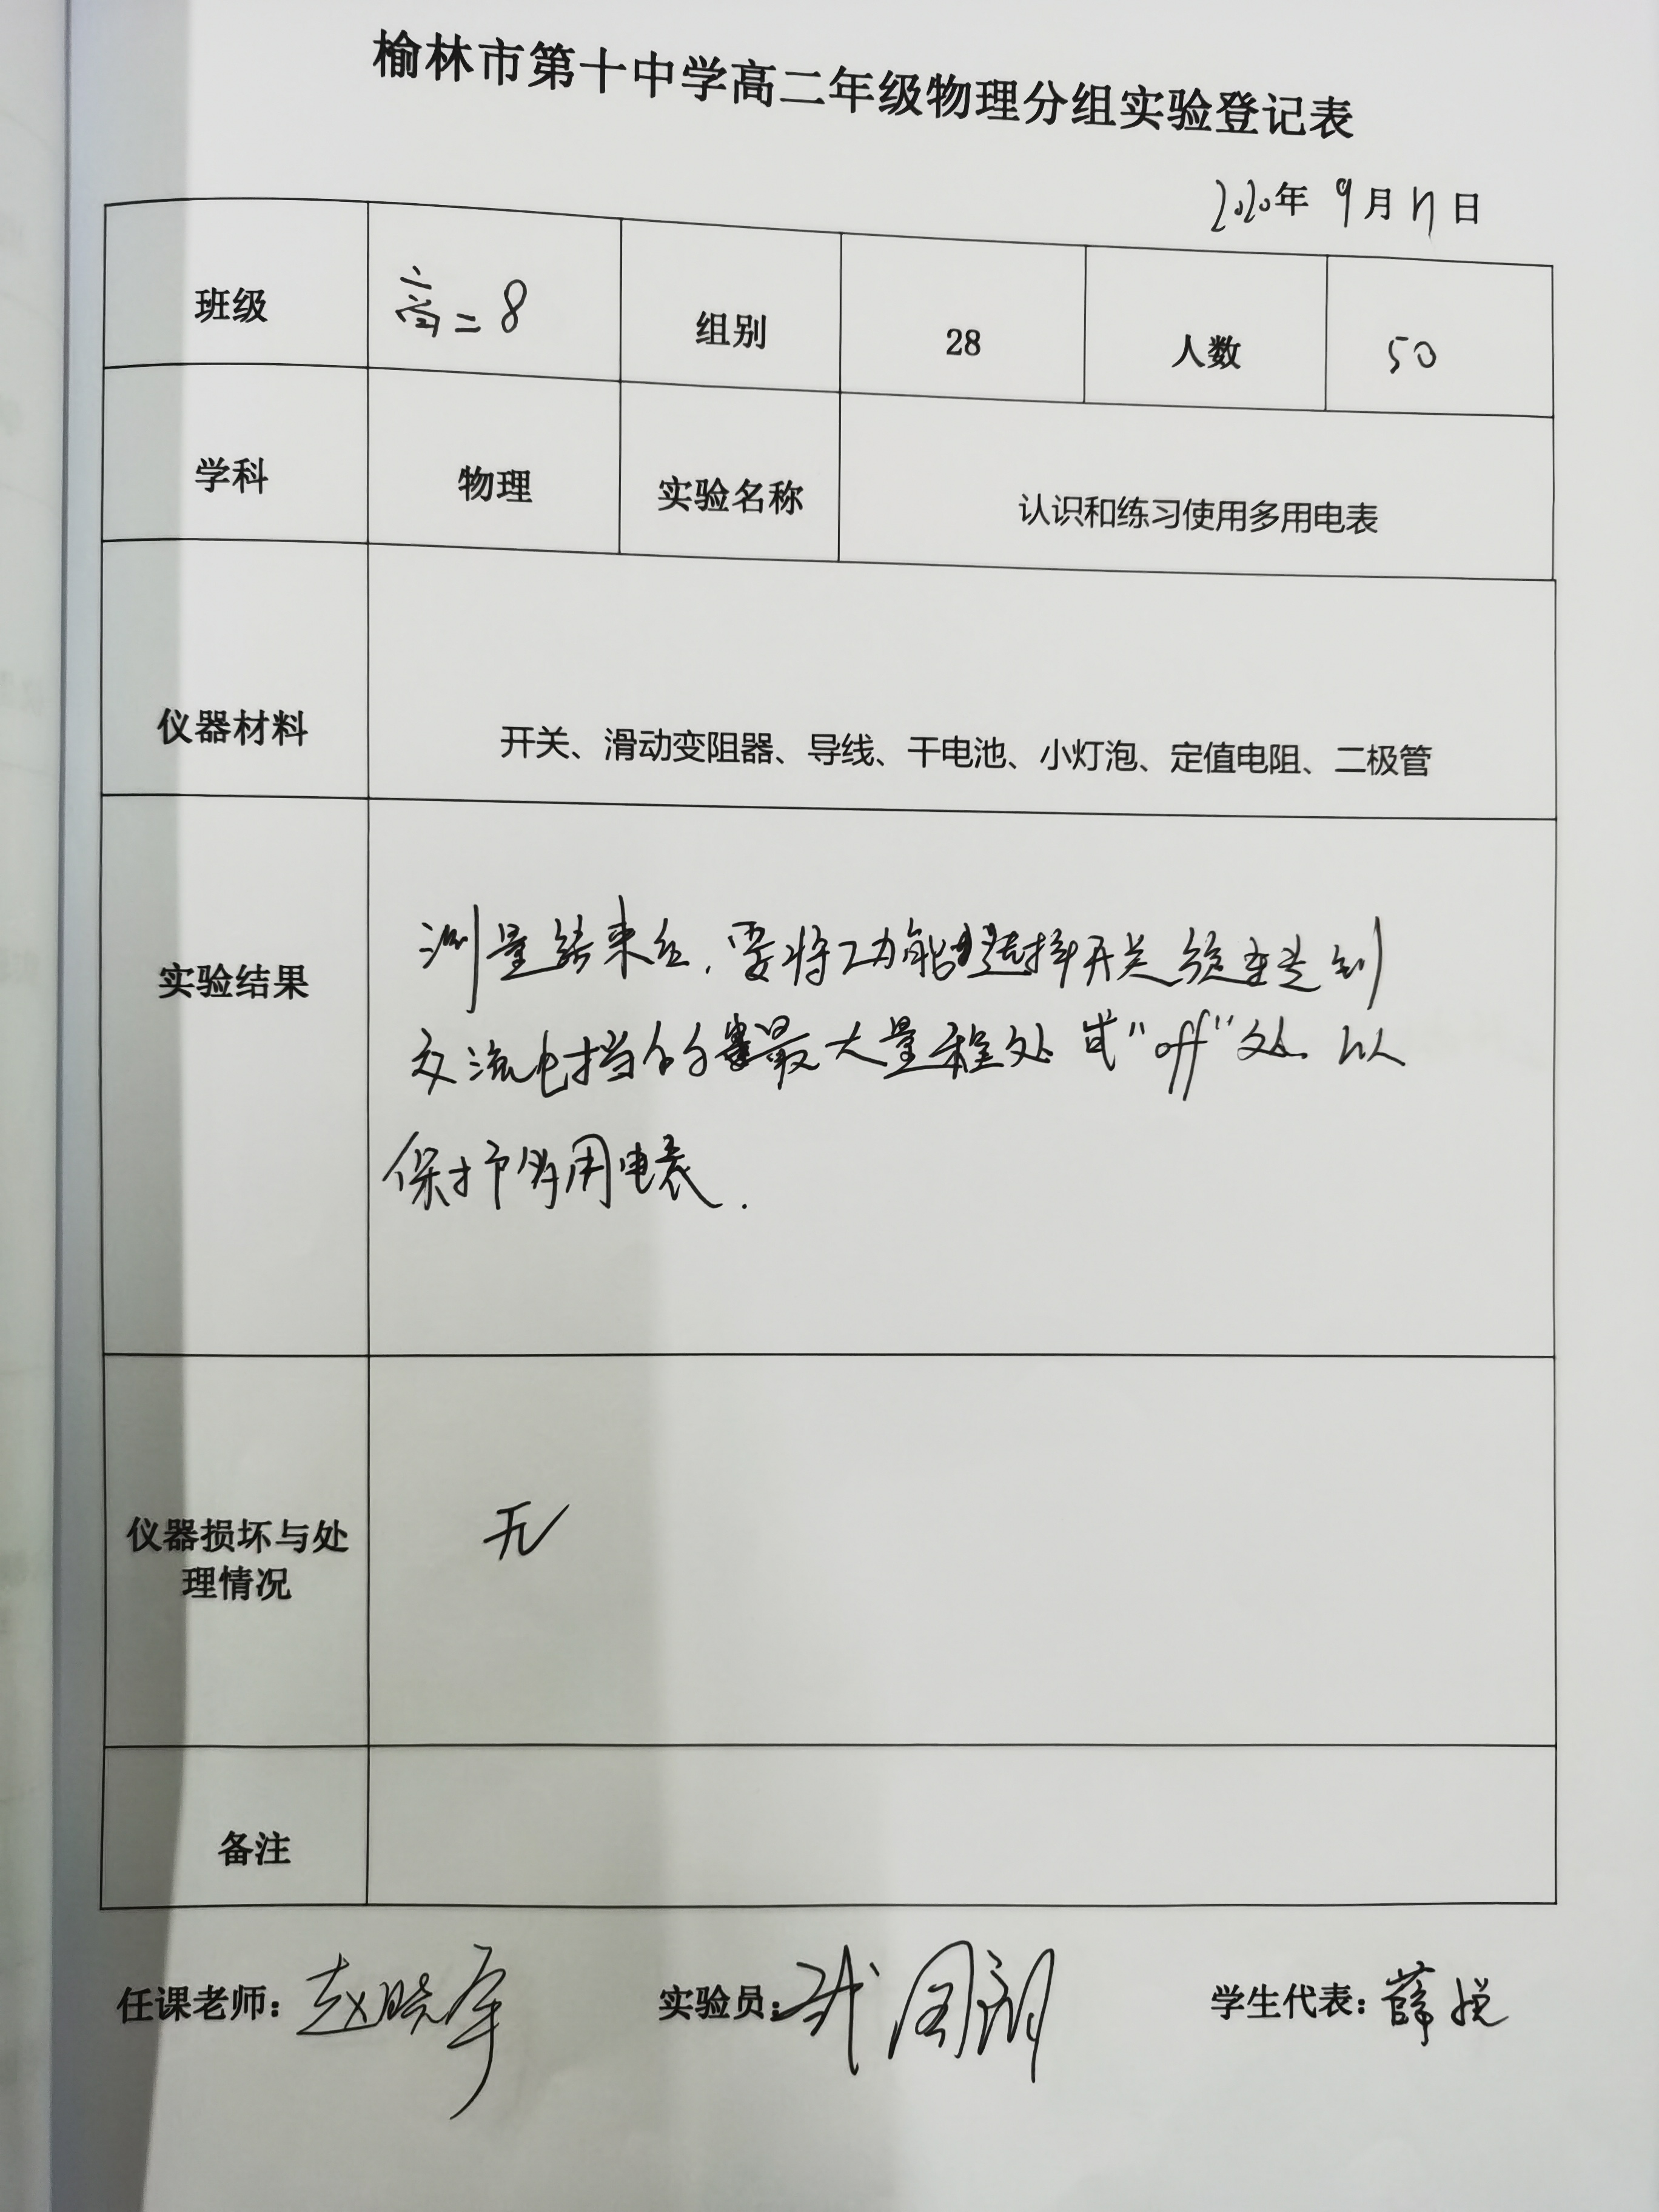 榆林市第十中学高二年级物理分组实验登记表
2020年 9月17日
班级 高二8 组别 28 人数 50
学科 物理 实验名称 认识和练习使用多用电表
仪器材料 开关、滑动变阻器、导线、干电池、小灯泡、定值电阻、二极管
测量结束后,要将功能选择开关旋到
实验结果
交流电挡的最大量程处或"off"处.以
保护多用电表.
仪器损坏与处
理情况
无
备注
任课老师:赵晓军 实验员:武国朝 学生代表:薛悦